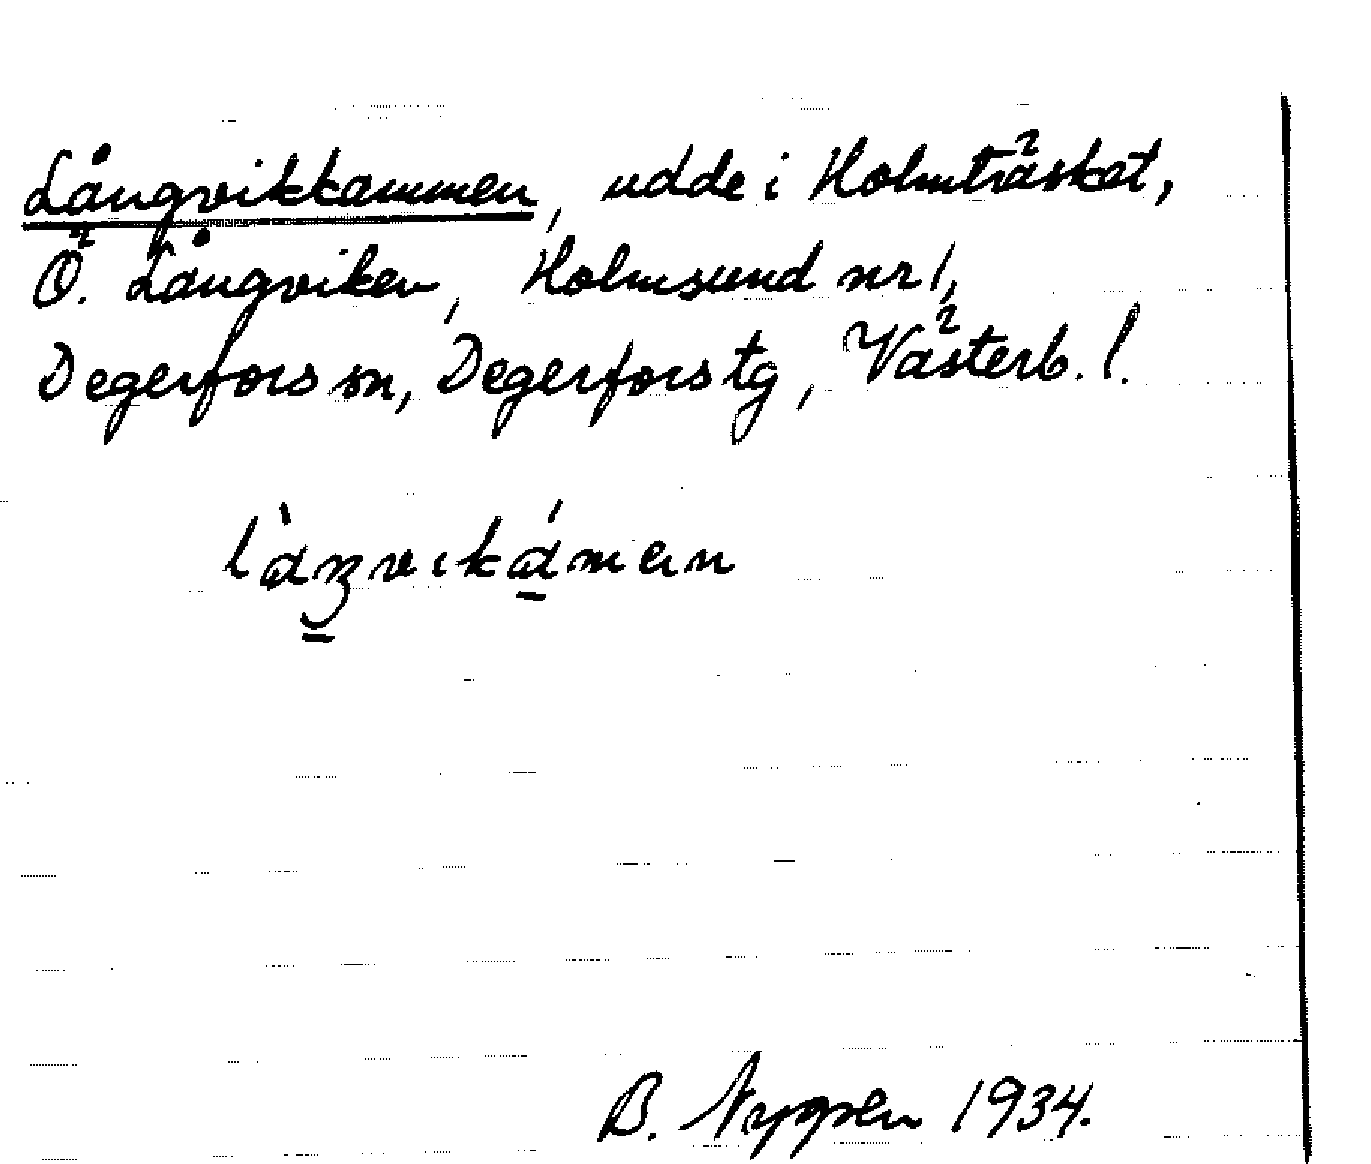 Långvikkammen, udde i Holmträsket,
Ö. Långviken, Holmsund nr 1,
Degerfors sn, Degerfors tg, Västerb. l.
B. Nygren 1934.